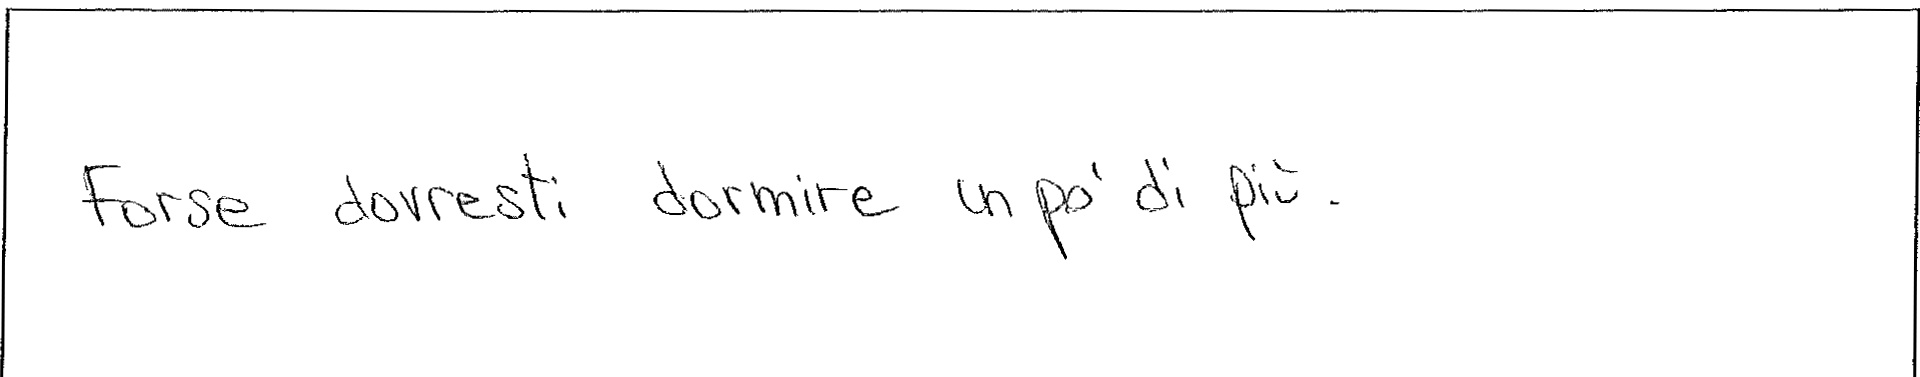 Forse dovresti dormire un po' di più.